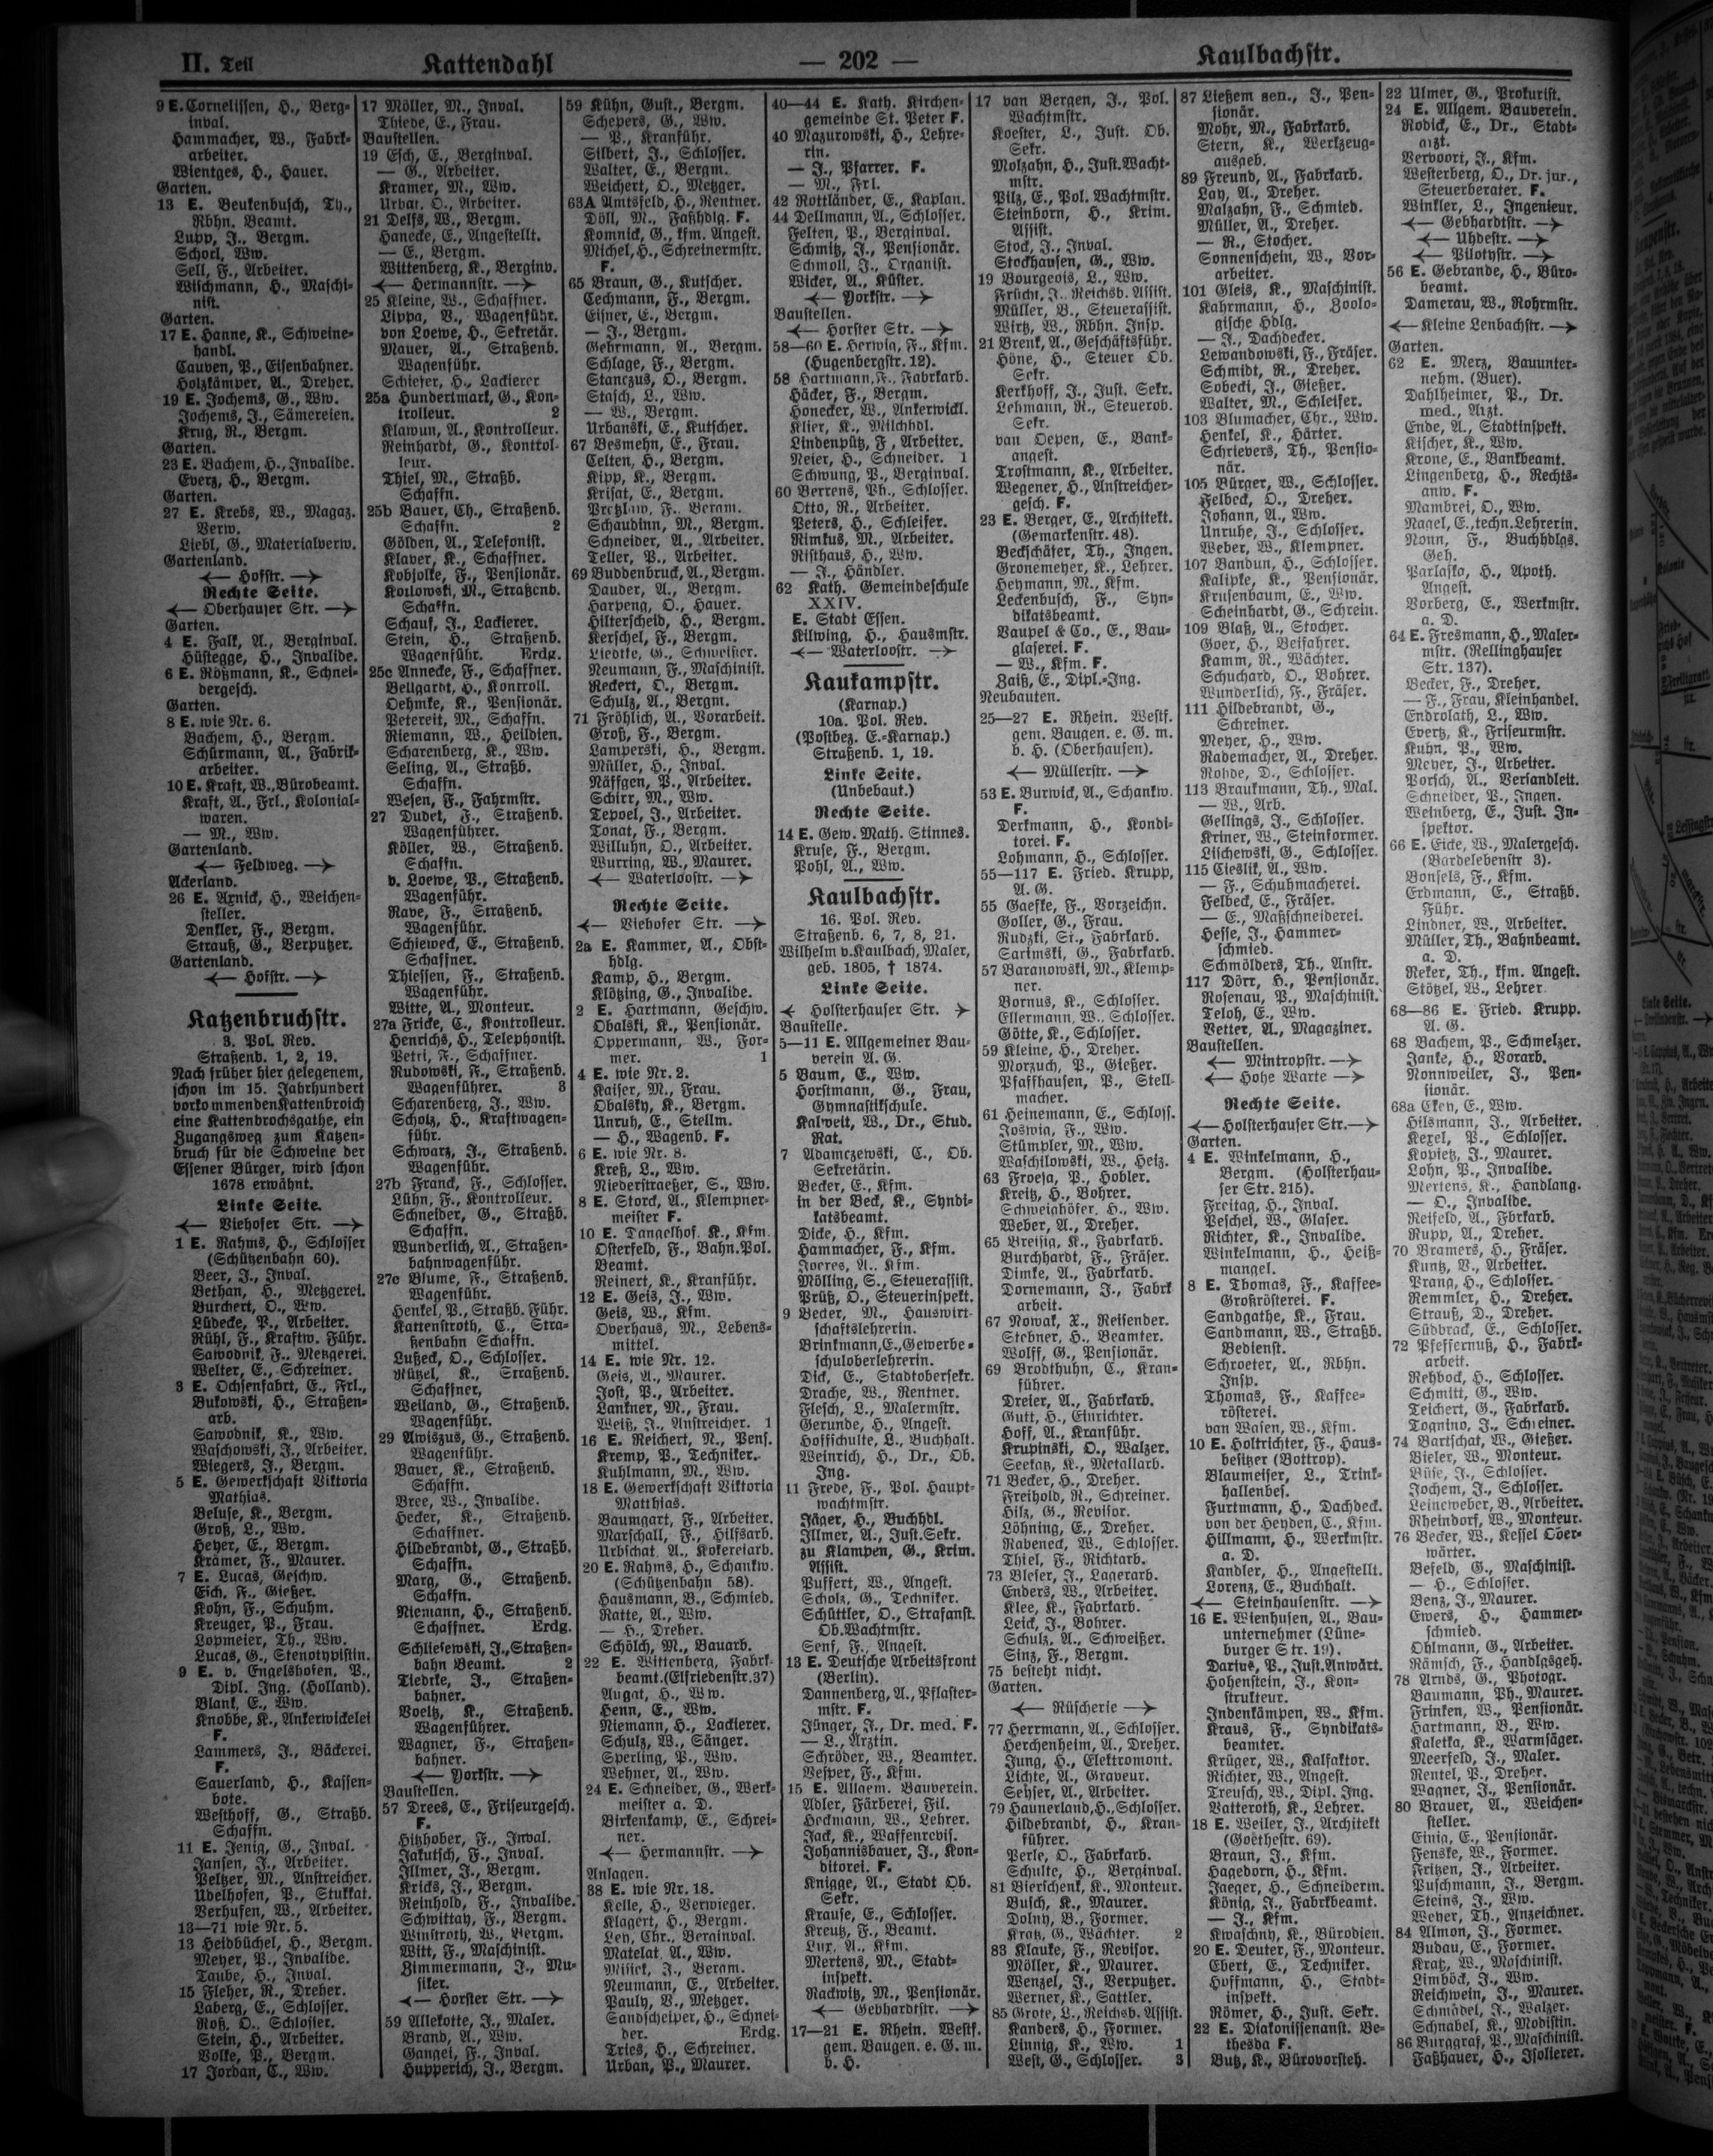 II. Teil
Kattendahl
— 202 —
Kaulbachstr.
9 E. Cornelissen, H., Berg-
inval.
Hammacher, W., Fabrik-
arbeiter.
Wientges, H., Hauer.
Garten.
13 E. Beukenbusch, Th.,
Rbhn. Beamt.
Lupp, J., Bergm.
Schorl, Ww.
Sell, F., Arbeiter.
Wischmann, H., Maschi-
nist.
Garten.
17 E. Hanne, K., Schweine-
handl.
Cauven, P., Eisenbahner.
Holzkämper, A., Dreher.
19 E. Jochems, G., Ww.
Jochems, J., Sämereien.
Krug, R., Bergm.
Garten.
23 E. Bachem, H., Invalide.
Everz, H., Bergm.
Garten.
27 E. Krebs, W., Magaz.
Verw.
Liebl, G., Materialverw.
Gartenland.
Hofstr.
Rechte Seite.
Oberhauser Str.
Garten.
4 E. Falk, A., Berginval.
Hüstegge, H., Invalide.
6 E. Rößmann, K., Schnei-
dergesch.
Garten.
8 E. wie Nr. 6.
Bachem, H., Bergm.
Schürmann, A., Fabrik-
arbeiter.
10 E. Kraft, W., Bürobeamt.
Kraft, A., Frl., Kolonial-
waren.
— M., Ww.
Gartenland.
Feldweg.
Ackerland.
26 E. Arnick, H., Weichen-
steller.
Denkler, F., Bergm.
Strauß, G., Verputzer.
Gartenland.
Hofstr.
Katzenbruchstr.
3. Pol. Rev.
Straßenb. 1, 2, 19.
Nach früher hier gelegenem,
schon im 15. Jahrhundert
vorkommenden Kattenbroich
eine Kattenbrochsgathe, ein
Zugangsweg zum Katzen-
bruch für die Schweine der
Essener Bürger, wird schon
1678 erwähnt.
Linke Seite.
Viehofer Str.
1 E. Rahms, H., Schlosser
(Schützenbahn 60).
Beer, J., Inval.
Bethan, H., Metzgerei.
Burchert, O., Ww.
Lübecke, P., Arbeiter.
Rühl, F., Kraftw. Führ.
Sawodnik, F., Metzgerei.
Welter, E., Schreiner.
3 E. Ochsenfahrt, E., Frl.,
Bukowski, H., Straßen-
arb.
Sawodnik, K., Ww.
Waschowski, J., Arbeiter.
Wiegers, J., Bergm.
5 E. Gewerkschaft Viktoria
Mathias.
Beluse, K., Bergm.
Groß, L., Ww.
Heyer, E., Bergm.
Krämer, F., Maurer.
7 E. Lucas, Geschw.
Eich, F., Gießer.
Kohn, F., Schuhm.
Kreuger, P., Frau.
Lopmeier, Th., Ww.
Lucas, G., Stenotypistin.
9 E. v. Engelshofen, P.,
Dipl. Ing. (Holland).
Blank, E., Ww.
Knobbe, K., Ankerwickelei
F.
Lammers, J., Bäckerei.
F.
Sauerland, H., Kassen-
bote.
Westhoff, G., Straßb.
Schaffn.
11 E. Jenig, G., Inval.
Jansen, J., Arbeiter.
Peltzer, M., Anstreicher.
Udelhofen, P., Stukkat.
Verhufen, W., Arbeiter.
13—71 wie Nr. 5.
13 Heidbüchel, H., Bergm.
Meyer, P., Invalide.
Taube, H., Inval.
15 Fleher, R., Dreher.
Laberg, E., Schlosser.
Roß, O., Schlosser.
Stein, H., Arbeiter.
Volke, P., Bergm.
17 Jordan, C., Ww.
17 Möller, M., Inval.
Thiede, E., Frau.
Baustellen.
19 Esch, E., Berginval.
— G., Arbeiter.
Kramer, M., Ww.
Urbat, O., Arbeiter.
21 Delfs, W., Bergm.
Hanecke, E., Angestellt.
— E., Bergm.
Wittenberg, K., Berginv.
Hermannstr.
25 Kleine, W., Schaffner.
Lippa, V., Wagenführ.
von Loewe, H., Sekretär.
Mauer, A., Straßenb.
Wagenführ.
Schiefer, H., Lackierer
25a Hundertmark, G., Kon-
trolleur. 2
Klawun, A., Kontrolleur.
Reinhardt, G., Konttol-
leur.
Thiel, M., Straßb.
Schaffn.
25b Bauer, Ch., Straßenb.
Schaffn. 2
Gölden, A., Telefonist.
Klaver, K., Schaffner.
Kobjolke, F., Pensionär.
Koslowski, M., Straßenb.
Schaffn.
Schauf, J., Lackierer.
Stein, H., Straßenb.
Wagenführ. Erdg.
25c Annecke, F., Schaffner.
Bellgardt, H., Kontroll.
Oehmke, K., Pensionär.
Petereit, M., Schaffn.
Riemann, W., Heildien.
Scharenberg, K., Ww.
Seling, A., Straßb.
Schaffn.
Wesen, F., Fahrmstr.
27 Dudet, F., Straßenb.
Wagenführer.
Köller, W., Straßenb.
Schaffn.
v. Loewe, P., Straßenb.
Wagenführ.
Rave, F., Straßenb.
Wagenführ.
Schieweck, E., Straßenb.
Schaffner.
Thiessen, F., Straßenb.
Wagenführ.
Witte, A., Monteur.
27a Fricke, C., Kontrolleur.
Henrichs, H., Telephonist.
Petri, F., Schaffner.
Rudowski, F., Straßenb.
Wagenführer. 3
Scharenberg, J., Ww.
Scholz, H., Kraftwagen-
führ.
Schwarz, J., Straßenb.
Wagenführ.
27b Franck, F., Schlosser.
Lühn, F., Kontrolleur.
Schneider, G., Straßb.
Schaffn.
Wunderlich, A., Straßen-
bahnwagenführ.
27c Blume, F., Straßenb.
Wagenführ.
Henkel, P., Straßb. Führ.
Kattenstroth, C., Stra-
ßenbahn Schaffn.
Lußeck, O., Schlosser.
Nützel, K., Straßenb.
Schaffner,
Weiland, G., Straßenb.
Wagenführ.
29 Awiszus, G., Straßenb.
Wagenführ.
Bauer, K., Straßenb.
Schaffn.
Bree, W., Invalide.
Hecker, K., Straßenb.
Schaffner.
Hildebrandt, G., Straßb.
Schaffn.
Marg, G., Straßenb.
Schaffn.
Niemann, H., Straßenb.
Schaffner. Erdg.
Schliefewski, J., Straßen-
bahn Beamt. 2
Tiedtke, J., Straßen-
bahner.
Voeltz, K., Straßenb.
Wagenführer.
Wagner, F., Straßen-
bahner.
Yorkstr.
Baustellen.
57 Drees, E., Friseurgesch.
F.
Hitzhober, F., Inval.
Jakutsch, F., Inval.
Illmer, J., Bergm.
Kricks, J., Bergm.
Reinhold, F., Invalide.
Schwittay, F., Bergm.
Winstroth, W., Bergm.
Witt, F., Maschinist.
Zimmermann, J., Mu-
siker.
Horster Str.
59 Allekotte, J., Maler.
Brand, A., Ww.
Gangei, F., Inval.
Hupperich, J., Bergm.
59 Kühn, Gust., Bergm.
Schepers, G., Ww.
— P., Kranführ.
Silbert, J., Schlosser.
Walter, E., Bergm.
Weichert, O., Metzger.
63A Amtsfeld, H., Rentner.
Döll, M., Faßhdlg. F.
Komnick, G., kfm. Angest.
Michel, H., Schreinermstr.
F.
65 Braun, G., Kutscher.
Cechmann, F., Bergm.
Eisner, E., Bergm.
— J., Bergm.
Gehrmann, A., Bergm.
Schlage, F., Bergm.
Stanczus, O., Bergm.
Stasch, L., Ww.
— W., Bergm.
Urbanski, E., Kutscher.
67 Besmehn, E., Frau.
Celten, H., Bergm.
Kipp, K., Bergm.
Krisat, E., Bergm.
Pretzlaw, F., Bergm.
Schaudinn, M., Bergm.
Schneider, A., Arbeiter.
Teller, P., Arbeiter.
69 Buddenbruck, A., Bergm.
Dauder, A., Bergm.
Harpeng, O., Hauer.
Hilterscheid, H., Bergm.
Kerschel, F., Bergm.
Liedtke, G., Schweißer.
Neumann, F., Maschinist.
Reckert, O., Bergm.
Schulz, A., Bergm.
71 Fröhlich, A., Vorarbeit.
Groß, F., Bergm.
Lamperski, H., Bergm.
Müller, H., Inval.
Näffgen, P., Arbeiter.
Schirr, M., Ww.
Tepoel, J., Arbeiter.
Tonat, F., Bergm.
Willuhn, O., Arbeiter.
Wurring, W., Maurer.
Waterloostr.
Rechte Seite.
Viehofer Str.
2a E. Kammer, A., Obst-
hdlg.
Kamp, H., Bergm.
Klötzing, G., Invalide.
2 E. Hartmann, Geschw.
Obalski, K., Pensionär.
Oppermann, W., For-
mer. 1
4 E. wie Nr. 2.
Kaiser, M., Frau.
Obalsky, K., Bergm.
Unruh, E., Stellm.
— H., Wagenb. F.
6 E. wie Nr. 8.
Kreß, L., Ww.
Niederstraeßer, S., Ww.
8 E. Storck, A., Klempner-
meister F.
10 E. Tangelhof, K., Kfm.
Osterfeld, F., Bahn. Pol.
Beamt.
Reinert, K., Kranführ.
12 E. Geis, J., Ww.
Geis, W., Kfm.
Overhaus, M., Lebens-
mittel.
14 E. wie Nr. 12.
Geis, A., Maurer.
Jost, P., Arbeiter.
Lankner, M., Frau.
Weiß, J., Anstreicher. 1
16 E. Reichert, N., Pens.
Kremp, P., Techniker.
Kuhlmann, M., Ww.
18 E. Gewerkschaft Viktoria
Matthias.
Baumgart, F., Arbeiter.
Marschall, F., Hilfsarb.
Urbschat, A., Kokereiarb.
20 E. Rahms, H., Schankw.
(Schützenbahn 58).
Hausmann, B., Schmied.
Ratte, A., Ww.
— H., Dreher.
Schölch, M., Bauarb.
22 E. Wittenberg, Fabrk.
beamt. (Elfriedenstr. 37)
Augat, H., Ww.
Henn, E., Ww.
Niemann, H., Lackierer.
Schulz, W., Sänger.
Sperling, P., Ww.
Wehner, A., Ww.
24 E. Schneider, G., Werk-
meister a. D.
Birkenkamp, E., Schrei-
ner.
Hermannstr.
Anlagen.
38 E. wie Nr. 18.
Kelle, H., Verwieger.
Klagert, H., Bergm.
Ley, Chr., Berginval.
Matelat, A., Ww.
Misiek, J., Bergm.
Neumann, E., Arbeiter.
Pauly, V., Metzger.
Sandscheiper, H., Schnei-
der. Erdg.
Tries, H., Schreiner.
Urban, P., Maurer.
40—44 E. Kath. Kirchen-
gemeinde St. Peter F.
40 Mazurowski, H., Lehre-
rin.
— J., Pfarrer. F.
— M., Frl.
42 Rottländer, E., Kaplan.
44 Dellmann, A., Schlosser.
Felten, P., Berginval.
Schmitz, J., Pensionär.
Schmoll, J., Organist.
Wicker, A., Küster.
Yorkstr.
Baustellen.
Horster Str.
58—60 E. Herwig, F., Kfm.
(Hugenbergstr. 12).
58 Hartmann, F., Fabrkarb.
Häcker, F., Bergm.
Honecker, W., Ankerwickl.
Klier, K., Milchhdl.
Lindenpütz, F., Arbeiter.
Neier, H., Schneider. 1
Schwung, P., Berginval.
60 Berrens, Ph., Schlosser.
Otto, R., Arbeiter.
Peters, H., Schleifer.
Rimkus, M., Arbeiter.
Risthaus, H., Ww.
— J., Händler.
62 Kath. Gemeindeschule
XXIV.
E. Stadt Essen.
Kilwing, H., Hausmstr.
Waterloostr.
Kaukampstr.
(Karnap.)
10a. Pol. Rev.
(Postbez. E.-Karnap.)
Straßenb. 1, 19.
Linke Seite.
(Unbebaut.)
Rechte Seite.
14 E. Gew. Math. Stinnes.
Kruse, F., Bergm.
Pohl, A., Ww.
Kaulbachstr.
16. Pol. Rev.
Straßenb. 6, 7, 8, 21.
Wilhelm v. Kaulbach, Maler,
geb. 1805, † 1874.
Linke Seite.
Holsterhauser Str.
Baustelle.
5—11 E. Allgemeiner Bau-
verein A. G.
5 Baum, E., Ww.
Horstmann, G., Frau,
Gymnastikschule.
Kalweit, W., Dr., Stud.
Rat.
7 Adamczewski, C., Ob.
Sekretärin.
Becker, E., Kfm.
in der Beck, K., Syndi-
katsbeamt.
Dicke, H., Kfm.
Hammacher, F., Kfm.
Joeres, A., Kfm.
Mölling, S., Steuerassist.
Prüß, O., Steuerinspekt.
9 Becker, M., Hauswirt-
schaftslehrerin.
Brinkmann, E., Gewerbe-
schuloberlehrerin.
Dick, E., Stadtobersekr.
Drache, W., Rentner.
Flesch, L., Malermstr.
Gerunde, H., Angest.
Hoffschulte, L., Buchhalt.
Weinrich, H., Dr., Ob.
Ing.
11 Frede, F., Pol. Haupt-
wachtmstr.
Jäger, H., Buchhdl.
Illmer, A., Just. Sekr.
zu Klampen, G., Krim.
Assist.
Puffert, W., Angest.
Scholz, G., Techniker.
Schüttler, O., Strafanst.
Ob. Wachtmstr.
Senf, F., Angest.
13 E. Deutsche Arbeitsfront
(Berlin).
Dannenberg, A., Pflaster-
mstr. F.
Jünger, J., Dr. med. F.
— L., Ärztin.
Schröder, W., Beamter.
Vesper, F., Kfm.
15 E. Allgem. Bauverein.
Adler, Färberei, Fil.
Heckmann, W., Lehrer.
Jack, K., Waffenrevis.
Johannisbauer, J., Kon-
ditorei. F.
Knigge, A., Stadt Ob.
Sekr.
Krause, E., Schlosser.
Kreutz, F., Beamt.
Lux, A., Kfm.
Mertens, M., Stadt-
inspekt.
Rackwitz, M., Pensionär.
Gebhardtstr.
17—21 E. Rhein. Westf.
gem. Baugen. e. G. m.
b. H.
17 van Bergen, J., Pol.
Wachtmstr.
Koester, L., Just. Ob.
Sekr.
Molzahn, H., Just. Wacht-
mstr.
Pilz, E., Pol. Wachtmstr.
Steinborn, H., Krim.
Assist.
Stock, J., Inval.
Stockhausen, G., Ww.
19 Bourgeois, L., Ww.
Frücht, J., Reichsb. Assist.
Müller, B., Steuerassist.
Wirtz, W., Rbhn. Insp.
21 Brenk, A., Geschäftsführ.
Höne, H., Steuer Ob.
Sekr.
Kerkhoff, J., Just. Sekr.
Lehmann, R., Steuerob.
Sekr.
van Oepen, E., Bank-
angest.
Trostmann, K., Arbeiter.
Wegener, H., Anstreicher-
gesch. F.
23 E. Berger, E., Architekt.
(Gemarkenstr. 48).
Beckschäfer, Th., Ingen.
Gronemeyer, K., Lehrer.
Heymann, M., Kfm.
Leckenbusch, F., Syn-
dikatsbeamt.
Vaupel & Co., E., Bau-
glaserei. F.
— W., Kfm. F.
Zaiß, E., Dipl.-Ing.
Neubauten.
25—27 E. Rhein. Westf.
gem. Baugen. e. G. m.
b. H. (Oberhausen).
Müllerstr.
53 E. Burwick, A., Schankw.
F.
Derkmann, H., Kondi-
torei. F.
Lohmann, H., Schlosser.
55—117 E. Fried. Krupp,
A. G.
55 Gaefke, F., Vorzeichn.
Goller, G., Frau.
Rudzki, St., Fabrkarb.
Sartmski, G., Fabrkarb.
57 Baranowski, M., Klemp-
ner.
Bornus, K., Schlosser.
Ellermann, W., Schlosser.
Götte, K., Schlosser.
59 Kleine, H., Dreher.
Morzuch, P., Gießer.
Pfaffhausen, P., Stell-
macher.
61 Heinemann, E., Schloss.
Joswig, F., Ww.
Stümpler, M., Ww.
Waschilowski, W., Heiz.
63 Froesa, P., Hobler.
Kreitz, H., Bohrer.
Schweighöfer, H., Ww.
Weber, A., Dreher.
65 Breisig, K., Fabrkarb.
Burchhardt, F., Fräser.
Dimke, A., Fabrkarb.
Dornemann, J., Fabrk
arbeit.
67 Nowak, X., Reisender.
Stebner, H., Beamter.
Wolff, G., Pensionär.
69 Brodthuhn, C., Kran-
führer.
Dreier, A., Fabrkarb.
Gutt, H., Einrichter.
Hoff, A., Kranführ.
Krupinski, O., Walzer.
Seekatz, K., Metallarb.
71 Becker, H., Dreher.
Freihold, R., Schreiner.
Hilz, G., Revisor.
Löhning, E., Dreher.
Rabeneck, W., Schlosser.
Thiel, F., Richtarb.
73 Bleser, J., Lagerarb.
Enders, W., Arbeiter.
Klee, K., Fabrkarb.
Leick, J., Bohrer.
Schulz, A., Schweißer.
Sinz, F., Bergm.
75 besteht nicht.
Garten.
Rüscherie
77 Herrmann, A., Schlosser.
Herchenheim, A., Dreher.
Jung, H., Elektromont.
Lichte, A., Graveur.
Seyser, A., Arbeiter.
79 Haunerland, H., Schlosser.
Hildebrandt, H., Kran-
führer.
Perle, O., Fabrkarb.
Schulte, H., Berginval.
81 Bierschenk, K., Monteur.
Busch, K., Maurer.
Dolny, V., Former.
Kratz, G., Wächter. 2
83 Klauke, F., Revisor.
Möller, K., Maurer.
Wenzel, J., Verputzer.
Werner, K., Sattler.
85 Grote, L., Reichsb. Assist.
Kanders, H., Former.
Linnig, K., Ww. 1
West, G., Schlosser. 3
87 Ließem sen., J., Pen-
sionär.
Mohr, M., Fabrkarb.
Stern, K., Werkzeug-
ausgeb.
89 Freund, A., Fabrkarb.
Lay, A., Dreher.
Malzahn, F., Schmied.
Müller, A., Dreher.
— R., Stocher.
Sonnenschein, W., Vor-
arbeiter.
101 Gleis, K., Maschinist.
Kahrmann, H., Zoolo-
gische Hdlg.
— J., Dachdecker.
Lewandowski, F., Fräser.
Schmidt, R., Dreher.
Sobecki, J., Gießer.
Walter, M., Schleifer.
103 Blumacher, Chr., Ww.
Henkel, K., Härter.
Schrievers, Th., Pensio-
när.
105 Bürger, W., Schlosser.
Felbeck, O., Dreher.
Johann, A., Ww.
Unruhe, J., Schlosser.
Weber, W., Klempner.
107 Bandun, H., Schlosser.
Kalipke, K., Pensionär.
Krusenbaum, E., Ww.
Scheinhardt, G., Schrein.
109 Blaß, A., Stocher.
Goer, H., Beifahrer.
Kamm, R., Wächter.
Schuchard, O., Bohrer.
Wunderlich, F., Fräser.
111 Hildebrandt, G.,
Schreiner.
Meyer, H., Ww.
Rademacher, A., Dreher.
Rohde, D., Schlosser.
113 Braukmann, Th., Mal.
— W., Arb.
Gellings, J., Schlosser.
Kriner, W., Steinformer.
Lischewski, G., Schlosser.
115 Cieslik, A., Ww.
— F., Schuhmacherei.
Felbeck, E., Fräser.
— E., Maßschneiderei.
Hesse, J., Hammer-
schmied.
Schmölders, Th., Anstr.
117 Dörr, H., Pensionär.
Rosenau, P., Maschinist.
Teloh, E., Ww.
Vetter, A., Magaziner.
Baustellen.
Mintropstr.
Hohe Warte
Rechte Seite.
Holsterhauser Str.
Garten.
4 E. Winkelmann, H.,
Bergm. (Holsterhau-
ser Str. 215).
Freitag, H., Inval.
Peschel, W., Glaser.
Richter, K., Invalide.
Winkelmann, H., Heiß-
mangel.
8 E. Thomas, F., Kaffee-
Großrösterei. F.
Sandgathe, K., Frau.
Sandmann, W., Straßb.
Bedienst.
Schroeter, A., Rbhn.
Insp.
Thomas, F., Kaffee-
rösterei.
van Wasen, W., Kfm.
10 E. Holtrichter, F., Haus-
besitzer (Bottrop).
Blaumeiser, L., Trink-
hallenbes.
Furtmann, H., Dachdeck.
von der Heyden, C., Kfm.
Hillmann, H., Werkmstr.
a. D.
Kandler, H., Angestellt.
Lorenz, E., Buchhalt.
Steinhausenstr.
16 E. Wienhusen, A., Bau-
unternehmer (Lüne-
burger Str. 19).
Darius, P., Just. Anwärt.
Hohenstein, J., Kon-
strukteur.
Indenkämpen, W., Kfm.
Kraus, F., Syndikats-
beamter.
Krüger, W., Kalfaktor.
Richter, W., Angest.
Treusch, W., Dipl. Ing.
Vatteroth, K., Lehrer.
18 E. Weiler, J., Architekt
(Goethestr. 69).
Braun, J., Kfm.
Hagedorn, H., Kfm.
Jaeger, H., Schneiderin.
König, J., Fabrkbeamt.
— J., Kfm.
Kwaschny, K., Bürodien.
20 E. Deuter, F., Monteur.
Ebert, E., Techniker.
Hoffmann, H., Stadt-
inspekt.
Römer, H., Just. Sekr.
22 E. Diakonissenanst. Be-
thesda F.
Butz, K., Bürovorsteh.
22 Ulmer, G., Prokurist.
24 E. Allgem. Bauverein.
Robick, E., Dr., Stadt-
arzt.
Vervoort, J., Kfm.
Westerberg, O., Dr. jur.,
Steuerberater. F.
Winkler, L., Ingenieur.
Gebhardtstr.
Uhdestr.
Pilotystr.
56 E. Gebrande, H., Büro-
beamt.
Damerau, W., Rohrmstr.
Kleine Lenbachstr.
Garten.
62 E. Merz, Bauunter-
nehm. (Buer).
Dahlheimer, P., Dr.
med., Arzt.
Ende, A., Stadtinspekt.
Kischer, K., Ww.
Krone, E., Bankbeamt.
Lingenberg, H., Rechts-
anw. F.
Mambrei, O., Ww.
Nagel, E., techn. Lehrerin.
Nonn, F., Buchhdlgs.
Geh.
Parlasko, H., Apoth.
Angest.
Vorberg, E., Werkmstr.
a. D.
64 E. Fresmann, H., Maler-
mstr. (Rellinghauser
Str. 137).
Becker, F., Dreher.
— F., Frau, Kleinhandel.
Endrolath, L., Ww.
Evertz, K., Friseurmstr.
Kuhn, P., Ww.
Meyer, J., Arbeiter.
Porsch, A., Versandleit.
Schneider, P., Ingen.
Weinberg, E., Just. In-
spektor.
66 E. Eicke, W., Malergesch.
(Bardelebenstr 3).
Bonsels, F., Kfm.
Erdmann, E., Straßb.
Führ.
Lindner, W., Arbeiter.
Müller, Th., Bahnbeamt.
a. D.
Reker, Th., kfm. Angest.
Stötzel, W., Lehrer
68—86 E. Fried. Krupp.
A. G.
68 Bachem, P., Schmelzer.
Janke, H., Vorarb.
Nonnweiler, J., Pen-
sionär.
68a Eken, E., Ww.
Hilsmann, J., Arbeiter.
Kerel, P., Schlosser.
Kopietz, J., Maurer.
Lohn, P., Invalide.
Mertens, K., Handlang.
— O., Invalide.
Reifeld, A., Fbrkarb.
Rupp, A., Dreher.
70 Bramers, H., Fräser.
Kuntz, P., Arbeiter.
Prang, H., Schlosser.
Remmler, H., Dreher.
Strauß, D., Dreher.
Südbrack, E., Schlosser.
72 Pfeffernuß, H., Fabrk-
arbeit.
Rehbock, H., Schlosser.
Schmitt, G., Ww.
Teichert, G., Fabrkarb.
Tognino, J., Schreiner.
74 Bartschat, W., Gießer.
Bieler, W., Monteur.
Büse, J., Schlosser.
Jochem, J., Schlosser.
Leineweber, B., Arbeiter.
Rheindorf, W., Monteur.
76 Becker, W., Kessel Ober-
wärter.
Beseld, G., Maschinist.
— H., Schlosser.
Benz, J., Maurer.
Ewers, H., Hammer-
schmied.
Ohlmann, G., Arbeiter.
Rämsch, F., Handlgsgeh.
78 Arnds, G., Photogr.
Baumann, Ph., Maurer.
Frinken, W., Pensionär.
Hartmann, B., Ww.
Kaletka, K., Warmsäger.
Meerfeld, J., Maler.
Rentel, P., Dreher.
Wagner, J., Pensionär.
80 Brauer, A., Weichen-
steller.
Einig, E., Pensionär.
Fenske, W., Former.
Fritzen, J., Arbeiter.
Puschmann, J., Bergm.
Steins, J., Ww.
Weyer, Th., Anzeichner.
84 Almon, J., Former.
Budau, E., Former.
Kratz, W., Maschinist.
Limböck, J., Ww.
Reichwein, J., Maurer.
Schmädel, J., Walzer.
Schnabel, K., Modistin.
86 Burggraf, P., Maschinist.
Faßhauer, H., Isolierer.